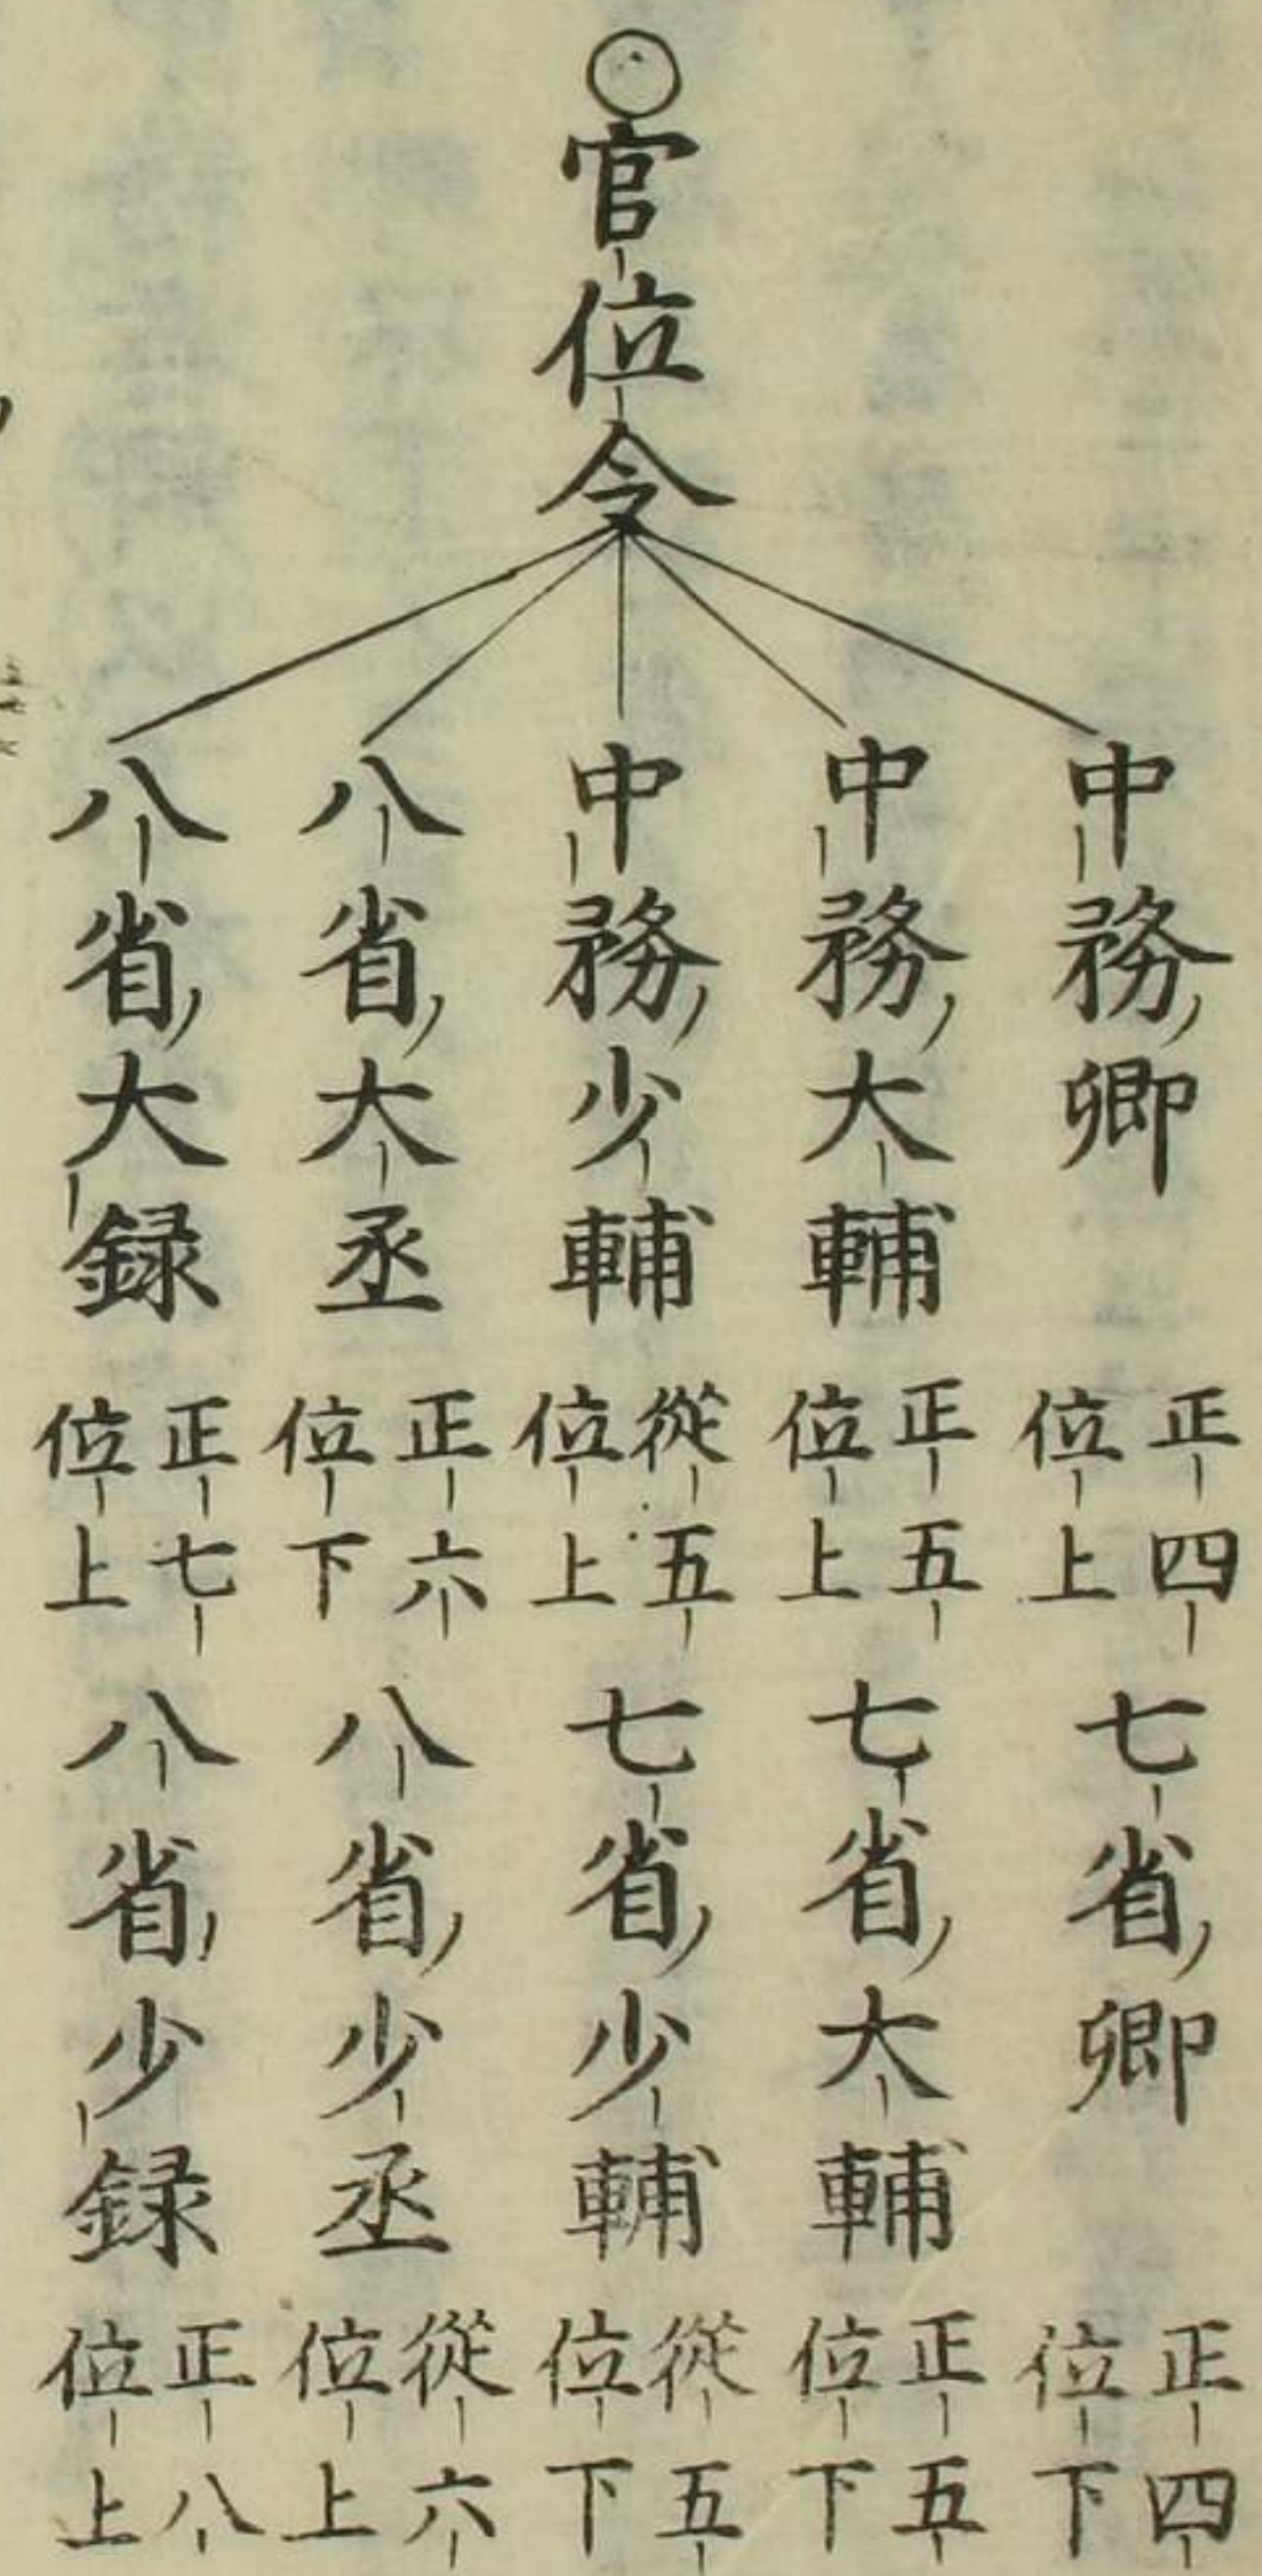 官位令
中務卿
正四
位上
七省卿
正四
位下
中務大輔
正五
位上
七省大輔
正五
位下
中務少輔
從五
位上
七省少輔
從五
位下
八省大丞
正六
位下
八省少丞
從六
位上
八省大録
正七
位上
八省少録
正八
位上